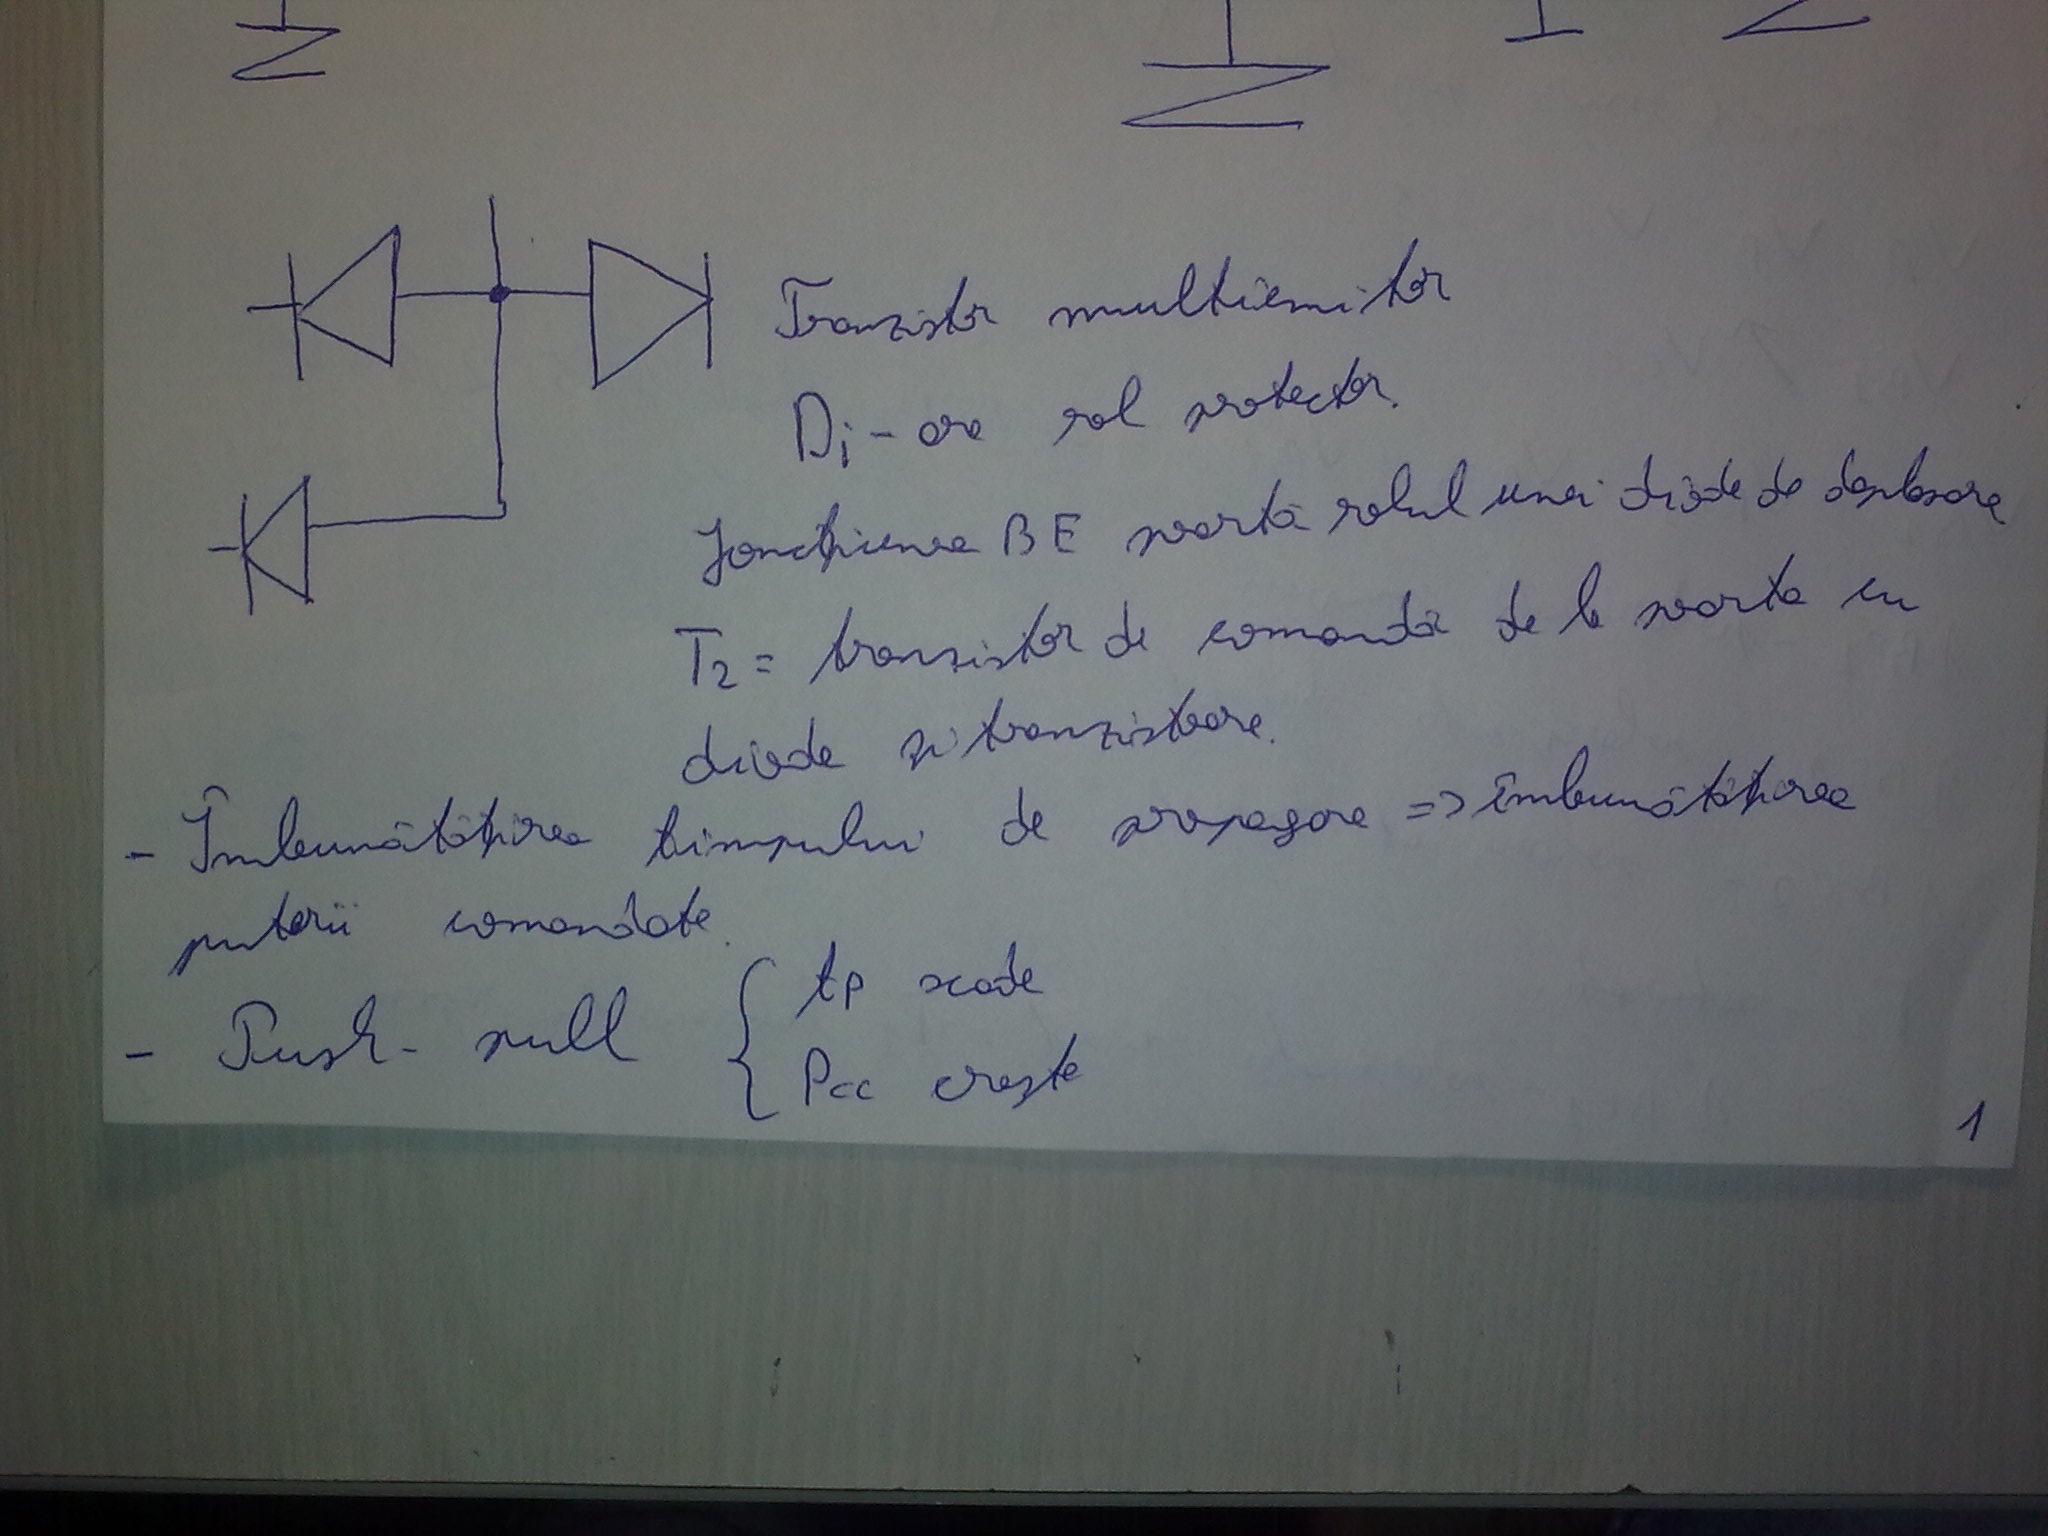 Tranzistor multiemitor
Di - are rol protector.
Joncțiunea BE poartă rolul unei diode de deplasare
T2 = tranzistor de comandă de la poarta cu
diode și tranzistoare.
- Îmbunătățirea timpului de propagare => îmbunătățirea
puterii comandate.
- Push - pull { tp scade
Pcc crește
1